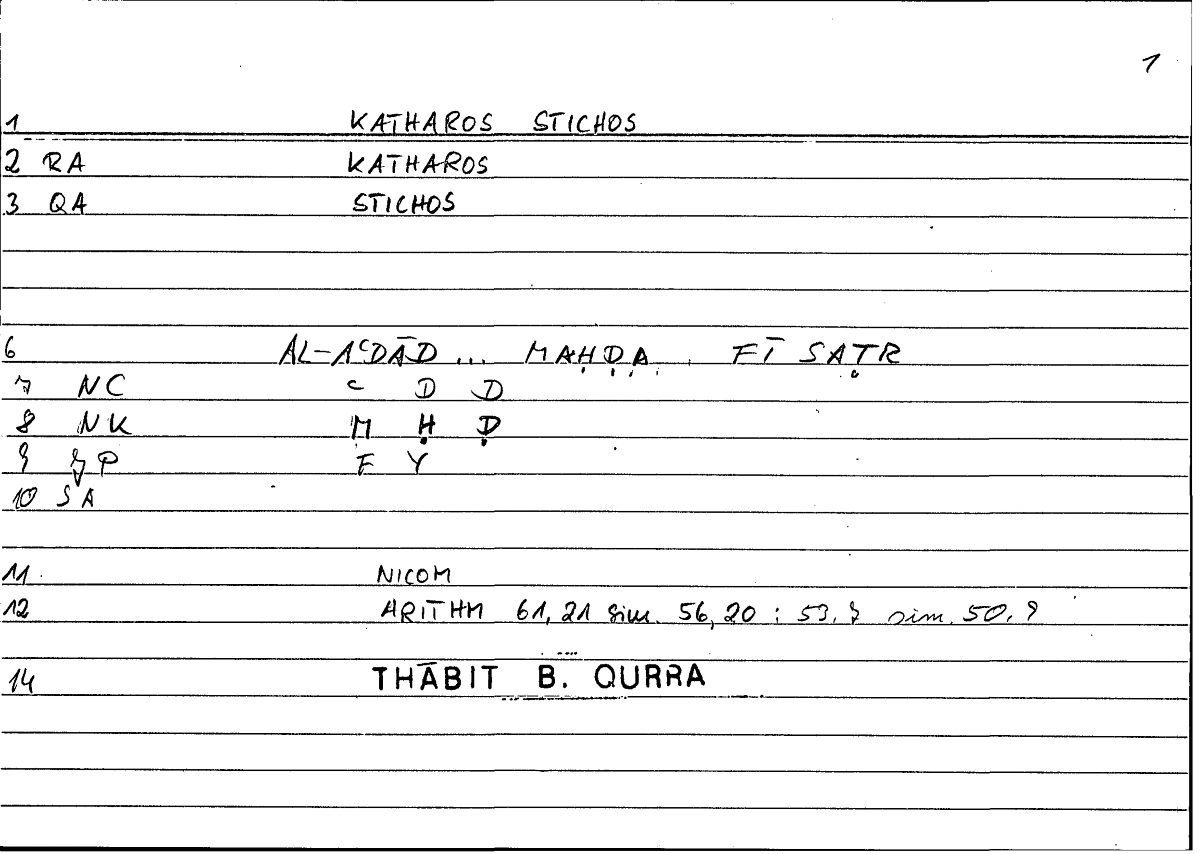 1
1 KATHAROS STICHOS
2 RA KATHAROS
3 QA STICHOS
6 AL-AʿDĀD ... MAḤḌA . FĪ SAṬR
7 NC ʿ D D
8 NK M Ḥ Ḍ
9 P F Y
10 SA
11 NICOM
12 ARITHM 61, 21 sim. 56, 20 : 53, 7 sim. 50, 9
14 THĀBIT B. QURRA